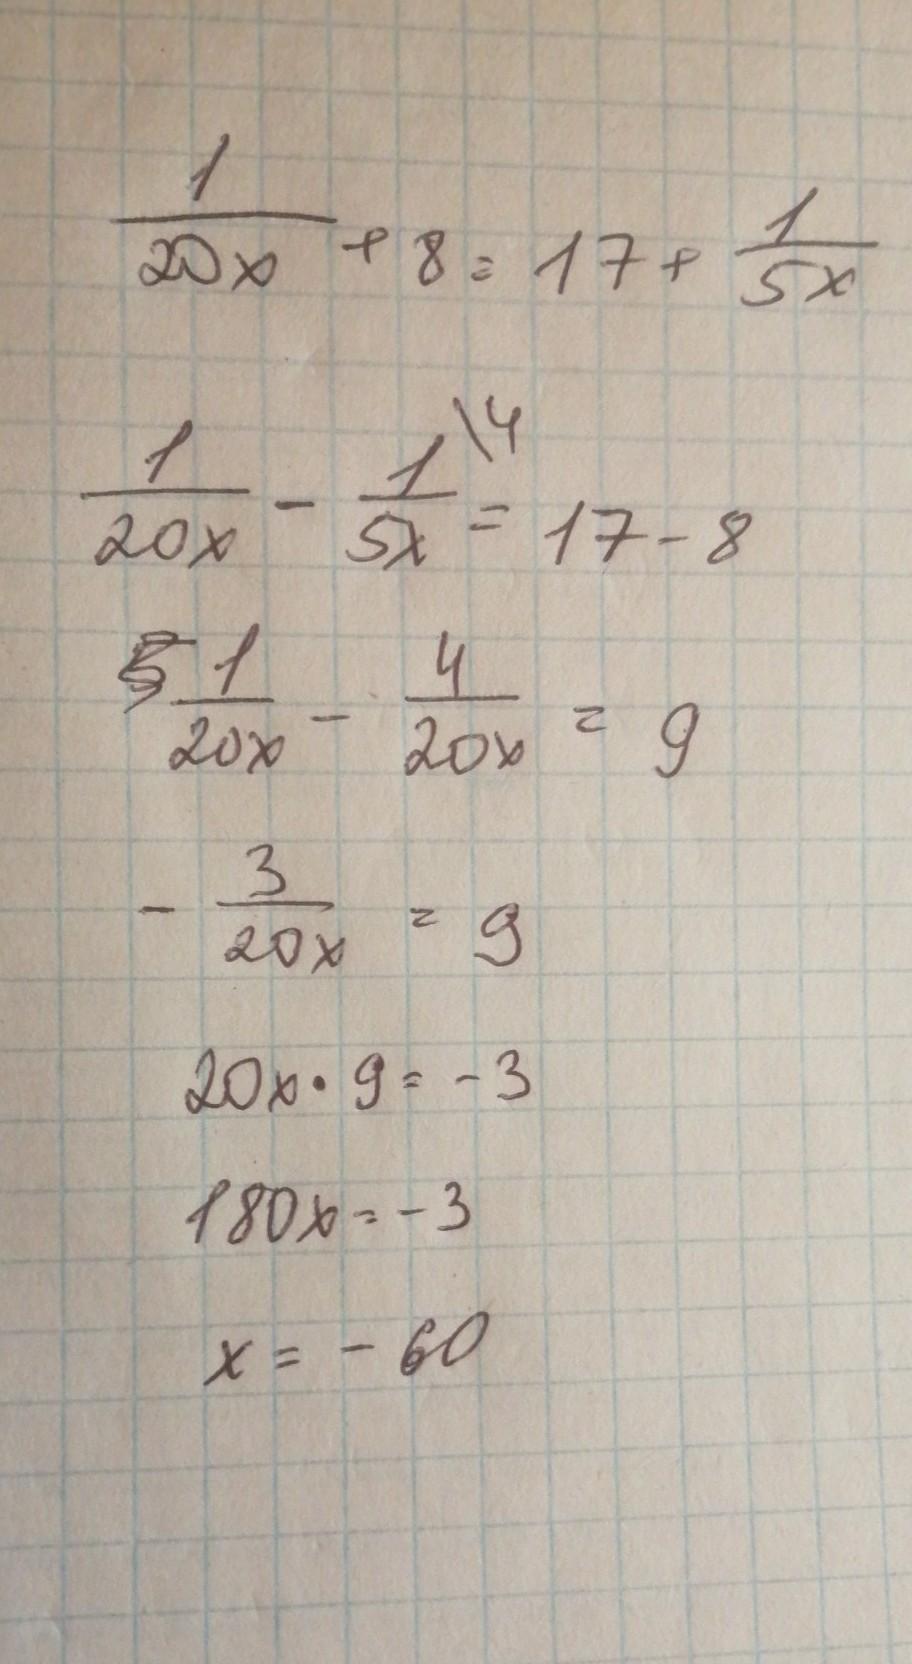 1/20x + 8 = 17 + 1/5x
1/20x - 1/5x \4 = 17 - 8
1/20x - 4/20x = 9
- 3/20x = 9
20x · 9 = -3
180x = -3
x = - 60